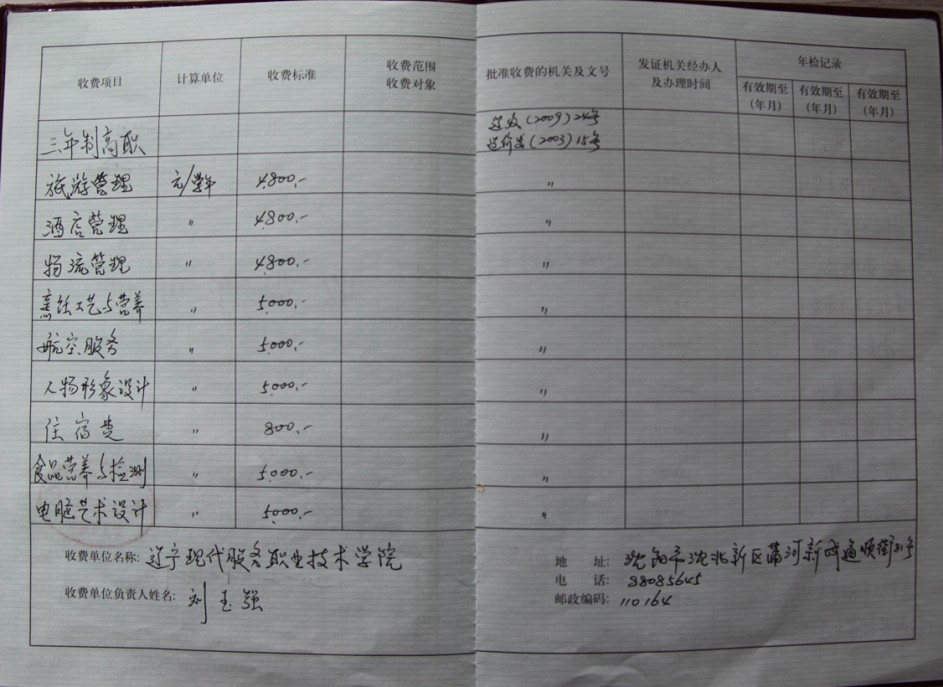 收费项目 计算单位 收费标准 收费范围 收费对象 批准收费的机关及文号 发证机关经办人及办理时间 年检记录
有效期至(年月) 有效期至(年月) 有效期至(年月)
三年制高职 辽政(2009)24号
辽价发(2003)15号
旅游管理 元/学年 4800.- 〃
酒店管理 〃 4800.- 〃
物流管理 〃 4800.- 〃
烹饪工艺与营养 〃 5000.- 〃
航空服务 〃 5000.- 〃
人物形象设计 〃 5000.- 〃
住宿费 〃 800.- 〃
食品营养与检测 〃 5000.- 〃
电脑艺术设计 〃 5000.- 〃
收费单位名称: 辽宁现代服务职业技术学院
收费单位负责人姓名: 刘玉强
地 址: 沈阳市沈北新区蒲河新城通顺街31号
电 话: 88085645
邮政编码: 110164